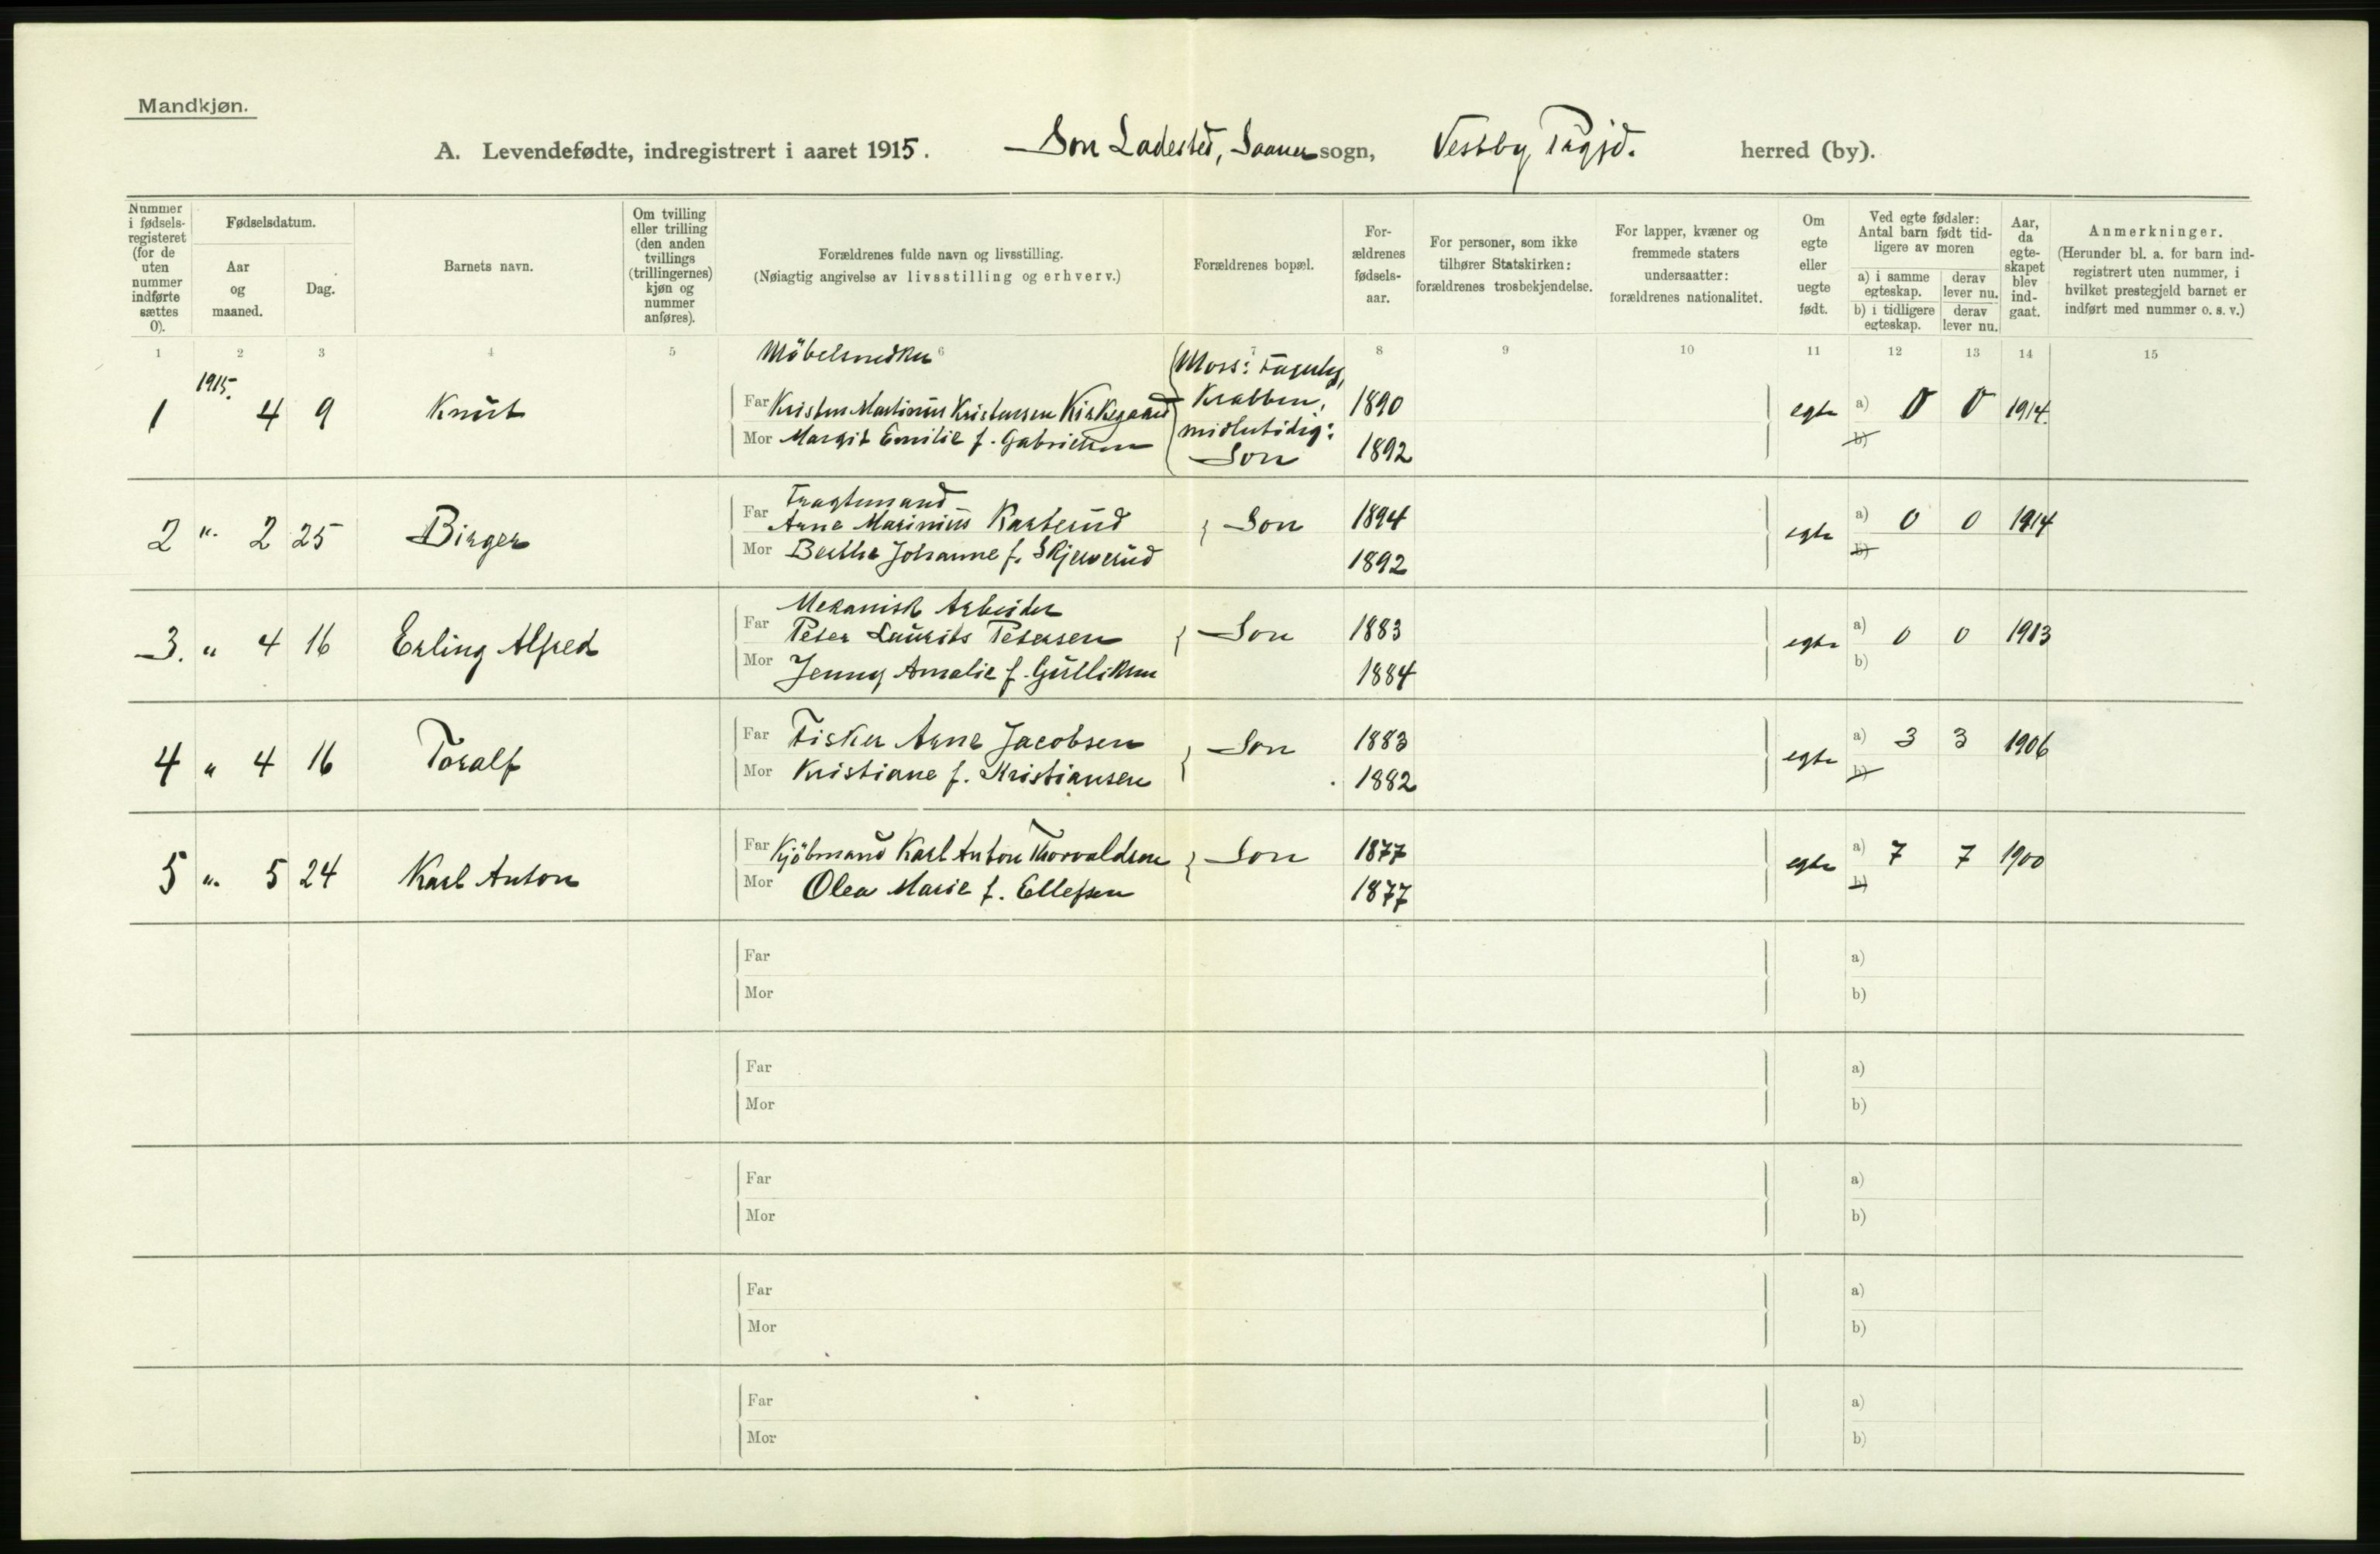 Mandkjøn.
A. Levendefødte, indregistrert i aaret 1915. Son Ladested, Saaner sogn, Vestby Prgjd. herred (by).
Nummer i fødsels-registeret (for de uten nummer indførte sættes 0).
Fødselsdatum.
Aar og maaned.
Dag.
Barnets navn.
Om tvilling eller trilling (den anden tvillings (trillingernes) kjøn og nummer anføres).
Forældrenes fulde navn og livsstilling.
(Nøiagtig angivelse av livsstilling og erhverv.)
Forældrenes bopæl.
For-ældrenes fødsels-aar.
For personer, som ikke tilhører Statskirken: forældrenes trosbekjendelse.
For lapper, kvæner og fremmede staters undersaatter: forældrenes nationalitet.
Om egte eller uegte født.
Ved egte fødsler: Antal barn født tid-ligere av moren
a) i samme egteskap.
derav lever nu.
b) i tidligere egteskap.
derav lever nu.
Aar, da egte-skapet blev ind-gaat.
Anmerkninger.
(Herunder bl. a. for barn ind-registrert uten nummer, i hvilket prestegjeld barnet er indført med nummer o. s. v.)
1 2 3 4 5 6 7 8 9 10 11 12 13 14 15
Möbelsnedker
1 1915. 4 9 Knut Far Kristen Martinius Kristensen Kirkegaard Moss: Fagerly, Krabben, midlertidig: Son 1890 egte a) 0 0 1914.
Mor Margit Emilie f. Gabrielsen 1892 b)
Fragtemand
2 " 2 25 Birger Far Arne Marinius Karterud Son 1894 egte a) 0 0 1914
Mor Berthe Johanne f. Skjeverud 1892 b)
Mekanisk Arbeider
3. " 4 16 Erling Alfred Far Peter Laurits Petersen Son 1883 egte a) 0 0 1913
Mor Jenny Amalie f. Gulliksen 1884 b)
4 " 4 16 Toralf Far Fisker Arne Jacobsen Son 1883 egte a) 3 3 1906
Mor Kristiane f. Kristiansen 1882 b)
5 " 5 24 Karl Anton Far Kjöbmand Karl Anton Thorvaldsen Son 1877 egte a) 7 7 1900
Mor Olea Marie f. Ellefsen 1877 b)
Far a)
Mor b)
Far a)
Mor b)
Far a)
Mor b)
Far a)
Mor b)
Far a)
Mor b)